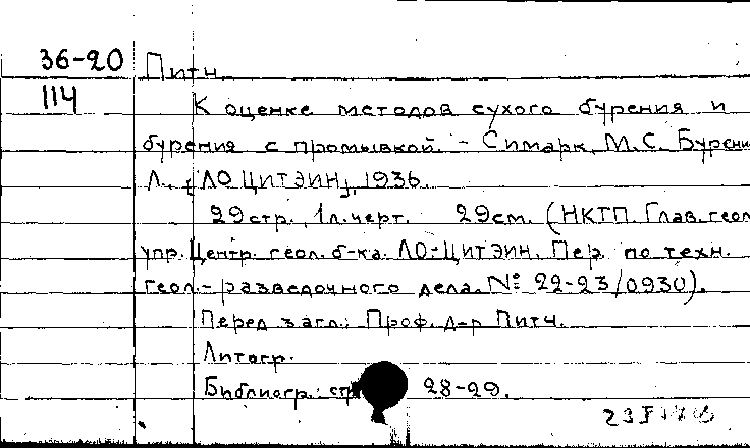 36-20 Питч.
114 К оценке методов сухого бурения и
бурения с промывкой. - Симарк, М.С. Бурени
Л., [ЛО ЦИТЭИН], 1936.
29 стр., 1 л. черт. 29 см. (НКТП. Глав. геол
упр. Центр. геол. б-ка. ЛО-ЦИТЭИН. Пер. по техн.
геол.-разведочного дела. № 22-23/0930).
Перед загл.: Проф. д-р Питч.
Литогр.
Библиогр.: стр 28-29.